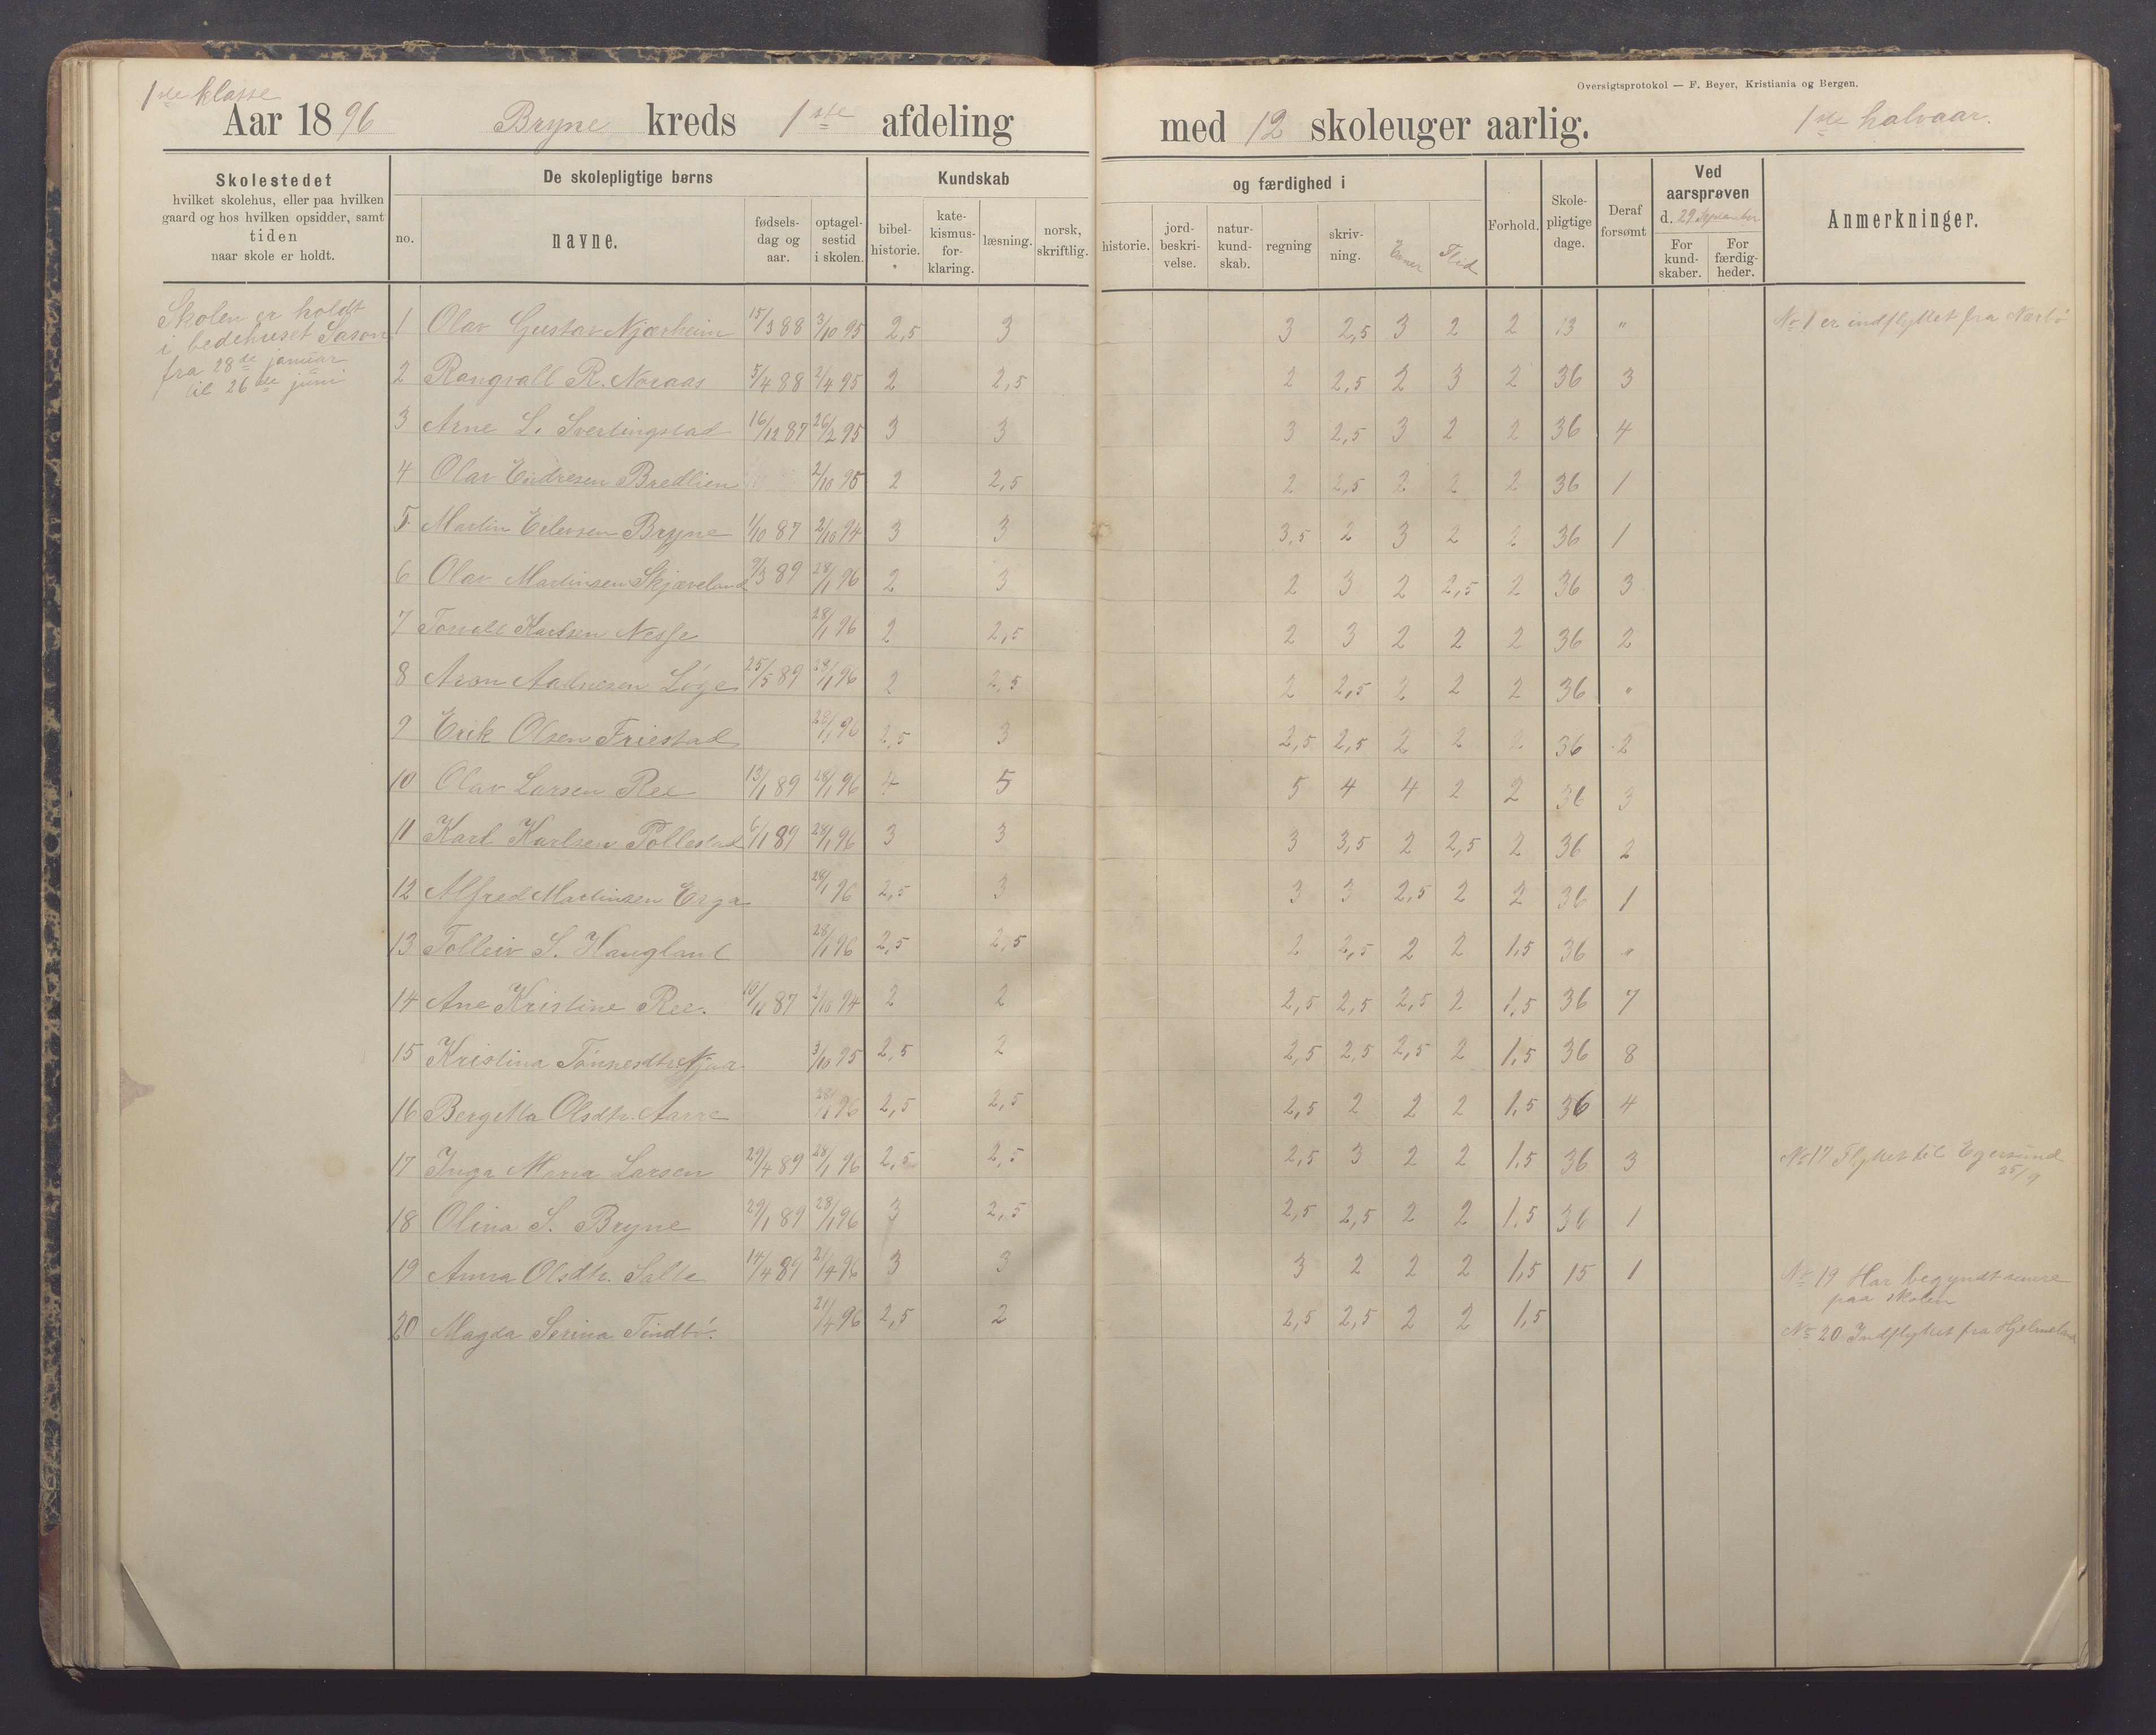 1ste klasse
Oversigtsprotokol — F. Beyer, Kristiania og Bergen.
Aar 1896 Bryne kreds 1ste afdeling med 12 skoleuger aarlig. 1ste halvaar.
Skolestedet
hvilket skolehus, eller paa hvilken
gaard og hos hvilken opsidder, samt
tiden
naar skole er holdt.
De skolepligtige børns
no.
navne.
fødsels-
dag og
aar.
optagel-
sestid
i skolen.
Kundskab
bibel-
historie.
kate-
kismus-
for-
klaring.
læsning.
norsk,
skriftlig.
og færdighed i
historie.
jord-
beskri-
velse.
natur-
kund-
skab.
regning
skriv-
ning.
Evner
Flid
Forhold.
Skole-
pligtige
dage.
Deraf
forsømt
Ved
aarsprøven
d. 29. September
For
kund-
skaber.
For
færdig-
heder.
Anmerkninger.
Skolen er holdt
i bedehuset Saron
fra 28de januar
til 26de juni
1 Olav Gustav Njærheim 15/3 88 3/10 95 2,5 3 3 2,5 3 2 2 13 " No 1 er indflyttet fra Nærbø
2 Rangvall R. Noraas 5/4 88 2/4 95 2 2,5 2 2,5 2 3 2 36 3
3 Arne L. Svertingstad 16/12 87 26/2 95 3 3 3 2,5 3 2 2 36 4
4 Olav Endresen Bredlien 2/10 95 2 2,5 2 2,5 2 2 2 36 1
5 Martin Eilersen Bryne 1/10 87 2/10 94 3 3 3,5 2 3 2 2 36 1
6 Olav Martinsen Skjæveland 9/3 89 28/1 96 2 3 2 3 2 2,5 2 36 3
7 Karlsen Nesse 28/1 96 2 2,5 2 3 2 2 2 36 2
8 Aadnesen Løge 25/5 89 28/1 96 2 2,5 2 2,5 2 2 2 36 "
9 Erik Olsen Friestad 28/1 96 2,5 3 2,5 2,5 2 2 2 36 2
10 Olav Larsen Ree 13/1 89 28/1 96 4 5 5 4 4 2 2 36 3
11 Karl Karlsen Pollestad 6/1 89 28/1 96 3 3 3 3,5 2 2,5 2 36 2
12 Alfred Martinsen Erga 28/1 96 2,5 3 3 3 2,5 2 2 36 1
13 Tolleiv S. Haugland 28/1 96 2,5 2,5 2 2,5 2 2 1,5 36 "
14 Ane Kristine Ree. 10/11 87 2/10 94 2 2 2,5 2,5 2,5 2 1,5 36 7
15 Kristina Tønnesdtr. Njaa 3/10 95 2,5 2 2,5 2,5 2,5 2 1,5 36 8
16 Bergitta Olsdtr. Aarre 28/1 96 2,5 2,5 2,5 2 2 2 1,5 36 4
17 Inga Maria Larsen 29/4 89 28/1 96 2,5 2,5 2,5 3 2 2 1,5 36 3 No 17 Flyttet til Egersund
25/9
18 Olina S. Bryne 29/1 89 28/1 96 3 2,5 2,5 2,5 2 2 1,5 36 1
19 Anna Olsdtr. Salte 14/4 89 21/4 96 3 3 3 2 2 2 1,5 15 1 No 19 Har begyndt senere
paa skolen
20 Magda Serina Tindbø. 21/4 96 2,5 2 2,5 2,5 2 2 1,5 No 20 Indflyttet fra Hjelmeland